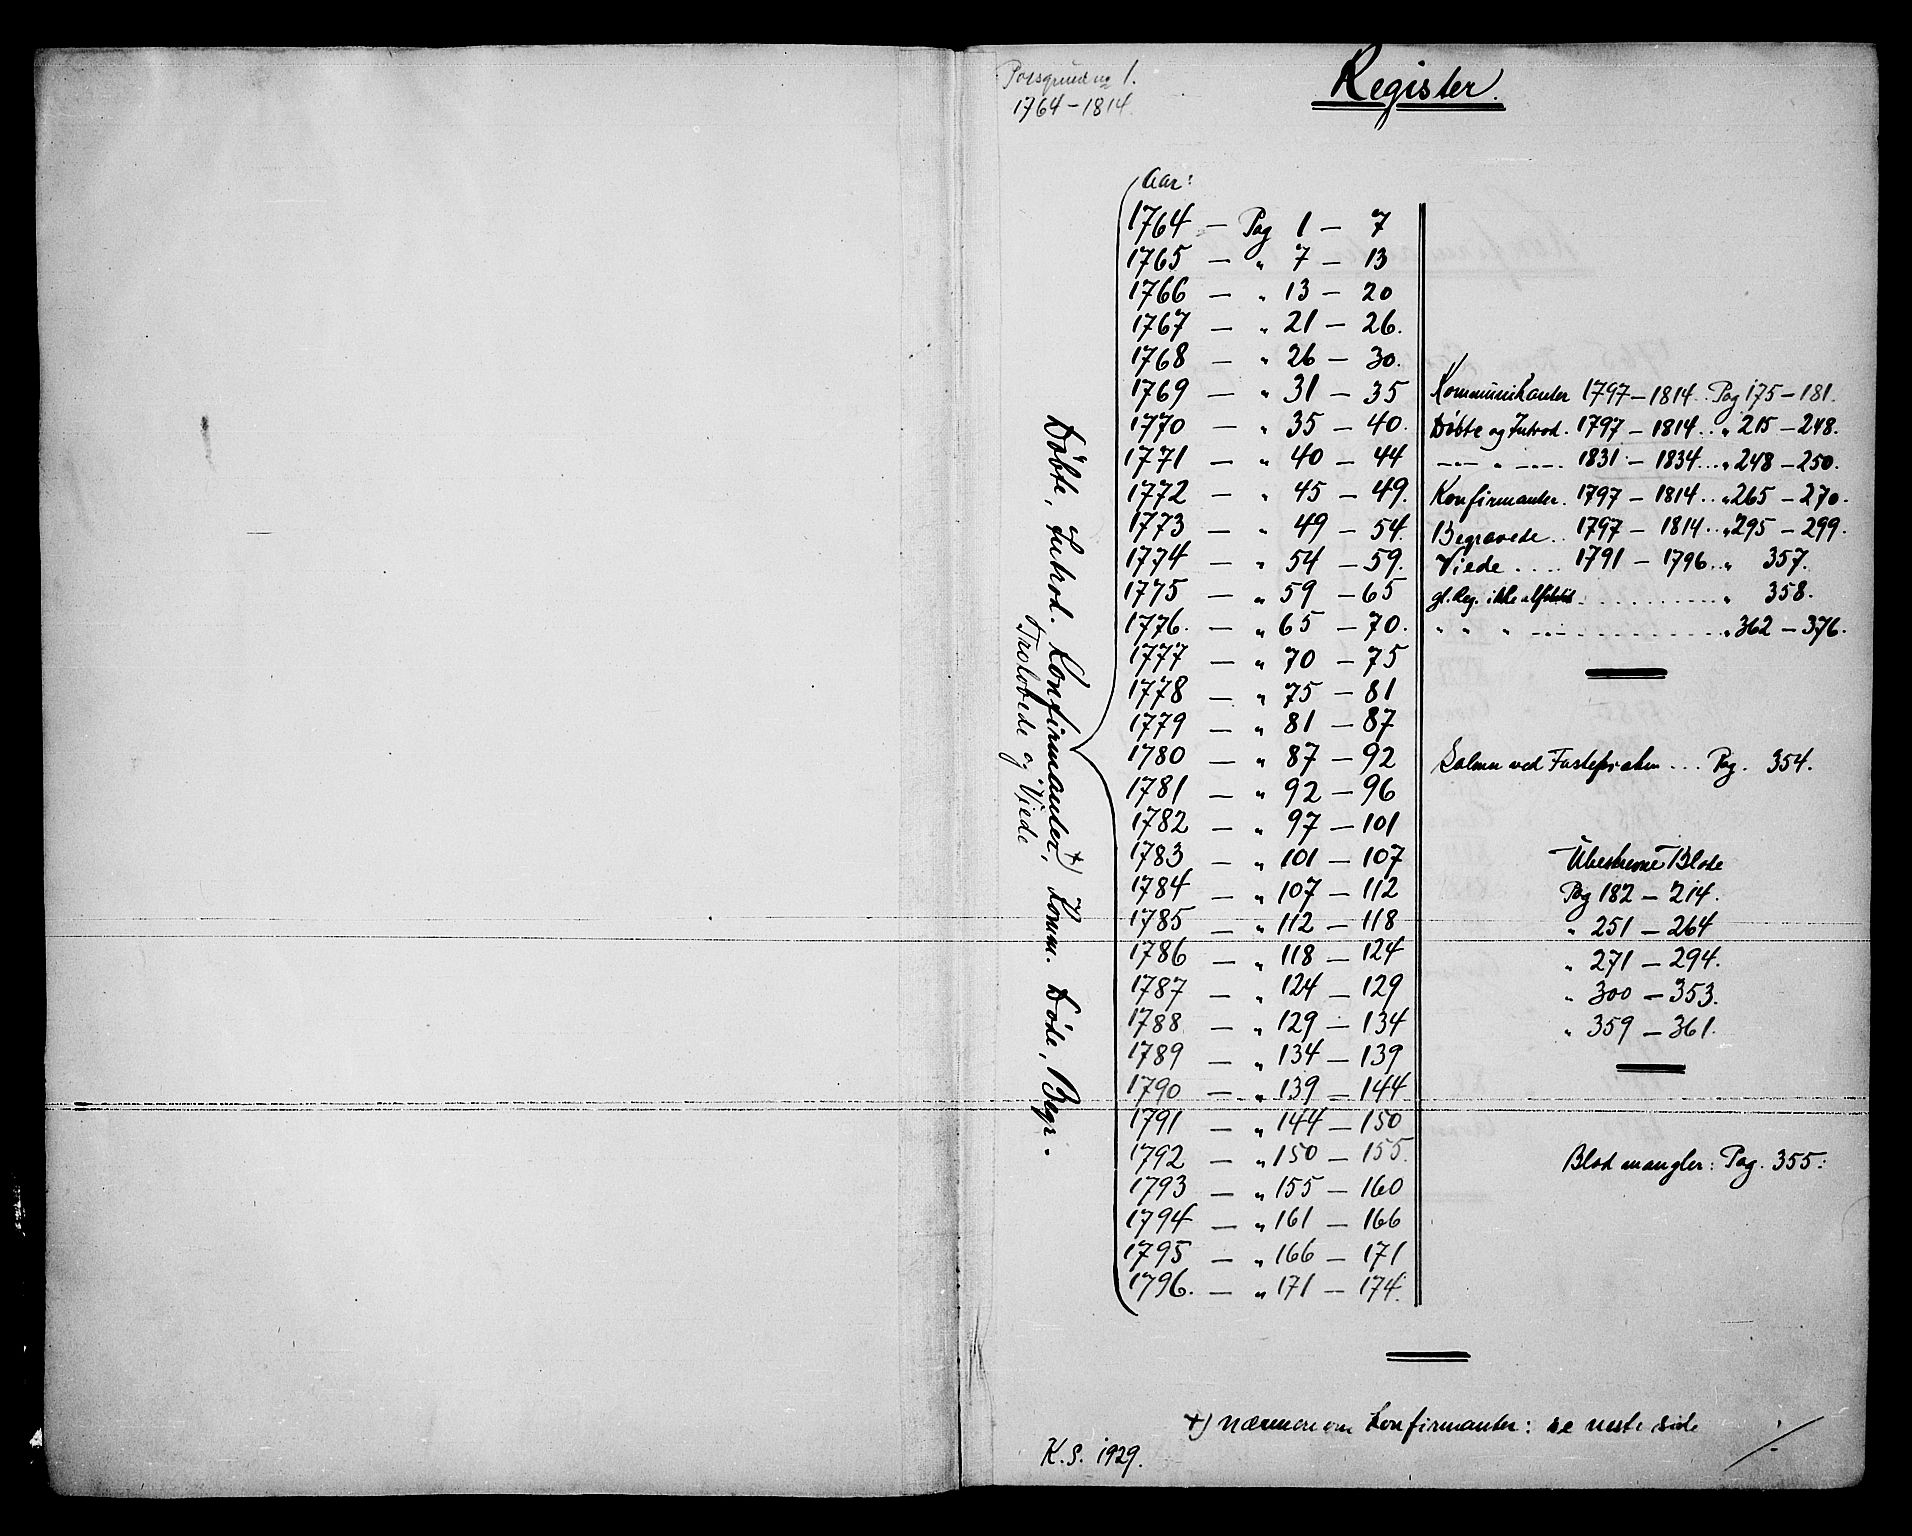 Porsgrund no 1.
1764-1814.
Register.
Aar:
1764 — Pag 1 — 7
1765 — " 7 — 13
1766 — " 13 — 20
1767 — " 21 — 26.
1768 — " 26 — 30.
1769 — " 31 — 35
1770 — " 35 — 40.
1771 — " 40 — 44
1772 — " 45 — 49.
1773 — " 49 — 54.
1774 — " 54 — 59.
1775 — " 59 — 65
1776. — " 65 — 70.
1777 — " 70 — 75
1778 — " 75 — 81
1779 — " 81 — 87
1780 — " 87 — 92
1781 — " 92 — 96
1782 — " 97 — 101
1783 — " 101 — 107
1784 — " 107 — 112
1785 — " 112 — 118
1786 — " 118 — 124
1787 — " 124 — 129
1788 — " 129 — 134
1789 — " 134 — 139
1790 — " 139 — 144
1791 — " 144 — 150
1792 — " 150 — 155.
1793 — " 155 — 160
1794 — " 161 — 166
1795 — " 166 — 171
1796. — " 171 — 174.
Döbte, Introd. Konfirmanter, +) Komm. Döde, Begr.
Trolovede og Viede
Kommunikanter 1797 — 1814. Pag 175 — 181.
Döbte og Introd. 1797 — 1814. " 215 — 248.
—"— " —"— 1831 — 1834... " 248 — 250.
Konfirmanter. 1797 — 1814.. " 265 — 270.
Begravede.. 1797 — 1814.. " 295 — 299.
Viede .... 1791 — 1796.. " 357.
gl. Reg. ikke alfabet. .......... " 358.
" " " —"— .......... " 362 — 376.
Salmer ved Fastepræken ... Pag. 354.
Ubeskrevne Blade
Pag 182 — 214.
" 251 — 264
" 271 — 294.
" 300 — 353.
" 359 — 361.
Blad mangler: Pag. 355.
+) Nærmere om Konfirmanter: se neste side
K. S. 1929.
./.